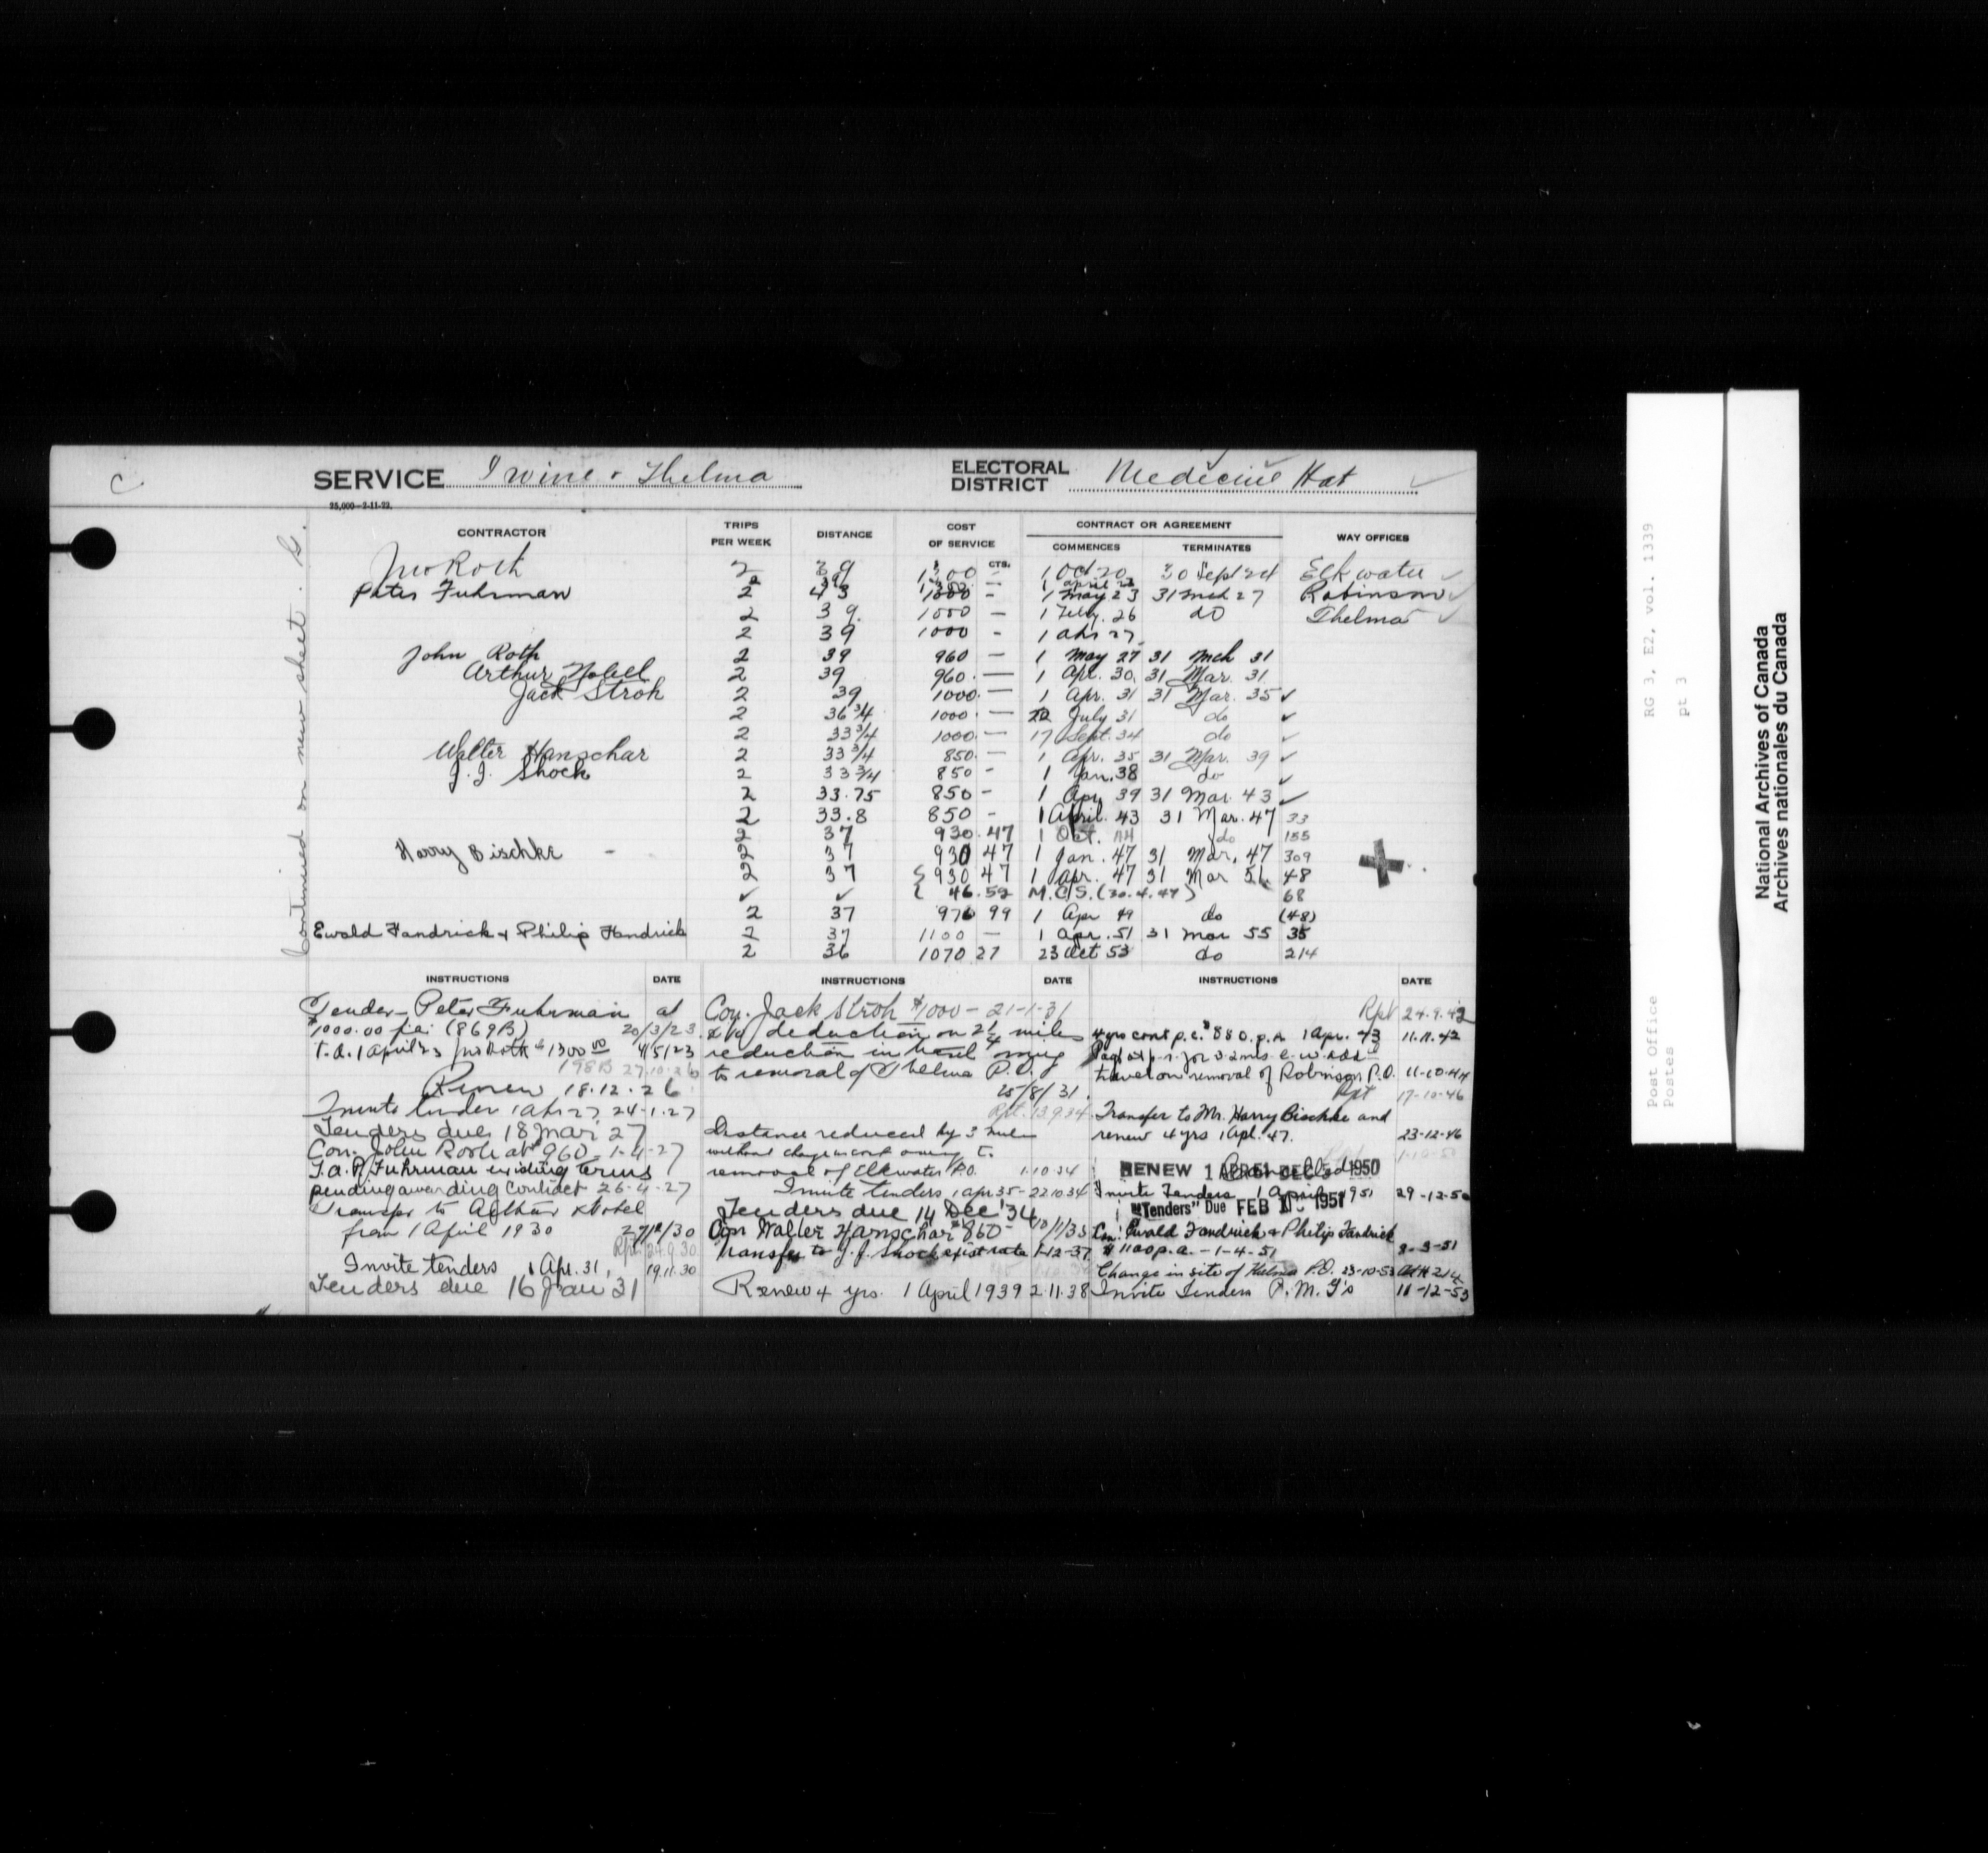 C
SERVICE Irvine & Thelma ELECTORAL DISTRICT Medicine Hat
25,000—2-11-22.
Continued on new sheet.
CONTRACTOR TRIPS PER WEEK DISTANCE COST OF SERVICE CONTRACT OR AGREEMENT COMMENCES TERMINATES WAY OFFICES
$ CTS.
Jno Roth 2 39 1300 — 1 Oct 20 30 Sept 24 Elkwater
2 39 1300 — 1 april 23
Peter Fuhrman 2 43 1000 - 1 May 23 31 Mch 27 Robinson
2 39. 1000 — 1 Feby. 26 do Thelma
2 39 1000 - 1 apr 27
John Roth 2 39 960 — 1 May 27 31 Mch 31
Arthur Nobel 2 39 960. — 1 Apr. 30, 31 Mar. 31
Jack Stroh 2 39 1000. — 1 Apr. 31 31 Mar. 35
2 36 3/4 1000. — July 31 do
2 33 3/4 1000. — 17 Sept. 34 do
Walter Hanschar 2 33 3/4 850. — 1 Apr. 35 31 Mar. 39
J. J. Shock 2 33 3/4 850 - 1 Jan. 38 do
2 33.75 850 - 1 Apr. 39 31 Mar. 43
2 33.8 850 - 1 April. 43 31 Mar. 47 33
2 37 930.47 1 Oct. 44 do 155
Harry Bischke - 2 37 930 47 1 Jan. 47 31 Mar. 47 309
2 37 930 47 1 Apr. 47 31 Mar 51 48
46.52 M.C.S. (30.4.47) 68
2 37 976 99 1 Apr 49 do (48)
Ewald Fandrick & Philip Fandrick 2 37 1100 — 1 Apr. 51 31 Mar 55 35
2 36 1070 27 23 Oct 53 do 214
INSTRUCTIONS DATE
Tender - Peter Fuhrman at
$1000.00 p.a. (869B) 20/3/23
T.A. 1 April 23 Jno Roth $1300 00 4/5/23
198B 27.10.26
Renew 18.12.26
Invite tender 1 apr 27 24-1-27
Tenders due 18 Mar 27
Con. John Roth at $960 - 1-4-27
T.a. P. Fuhrman existing terms
pending awarding contract 26-4-27
Transfer to Arthur Nobel
from 1 April 1930
Rpt. 24.9.30
Invite tenders 1 Apr. 31, 19.11.30
Tenders due 16 Jan 31
INSTRUCTIONS DATE
Con. Jack Stroh $1000 - 21-1-31
deduction on 2 1/4 miles
reduction in travel owing
to removal of Thelma P.O.
25/8/31.
Rpt. 13.9.34
Distance reduced by 3 miles
without change in cost owing to
removal of Elkwater P.O. 1.10.34
Invite tenders, 1 apr 35 - 22.10.34
Tenders due 14 Dec '34
Con Walter Hanschar $850 -
Transfer to J. J. Shock exist rate 1-12-37
Renew 4 yrs. 1 April 1939 2.11.38
INSTRUCTIONS DATE
Rpt 24.9.42
4 yrs cont p.c. $880. p.a. 1 Apr. 43 11.11.42
travel on removal of Robinson P.O. 11-10-44
Rpt 17-10-46
Transfer to Mr. Harry Bischke and
renew 4 yrs 1 Apl. 47. 23-12-46
RENEW 1 APR 51 DEC 5 1950
Cancelled
Invite Tenders 1 April 1951 29-12-50
"Tenders" Due FEB 1951
Con. Ewald Fandrick & Philip Fandrick
$1100 p.a. - 1-4-51 8-3-51
Change in site of Thelma P.O. 23-10-53 Auth 214
Invite Tenders P.M. G's 11-12-53
Post Office RG 3, E2, vol. 1339
Postes pt 3
National Archives of Canada
Archives nationales du Canada